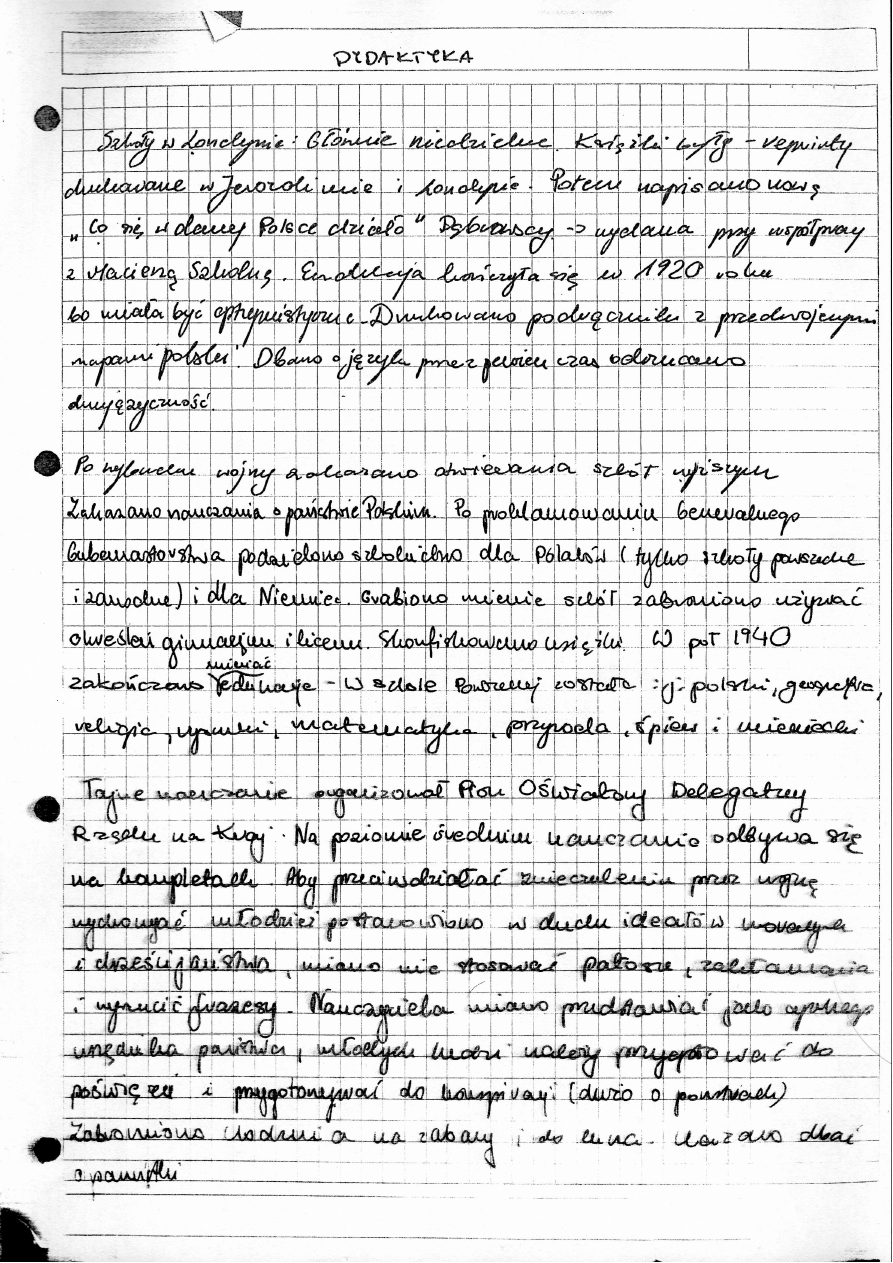 DYDAKTYKA
Szkoły w Londynie: Głównie niedzielne. Książki były - reprinty
drukowane w Jerozolimie i Londynie. Potem napisano nową
"Co się w dawnej Polsce działo" Dąbrowscy -> wydana przy współpracy
z Macierzą Szkolną. Edukacja kończyła się w 1920 roku
bo miała być optymistyczna. Drukowano podręczniki z przedwojennymi
mapami polski. Dbano o język przez pewien czas odrzucano
dwujęzyczność.
Po wybuchu wojny zakazano otwierania szkół wyższych
Zakazano nauczania o państwie Polskim. Po proklamowaniu Generalnego
Gubernatorstwa podzielono szkolnictwo dla Polaków (tylko szkoły powszechne
i zawodne) i dla Niemiec. Grabiono mienie szkół zabroniono używać
określeń gimnazjum i liceum. Skonfiskowano książki. W poł 1940
zakończono edukacje - W szkole Powszechnej została : j. polski, geografia,
religia, rysunki, matematyka, przyroda, śpiew i niemiecki
Tajne nauczanie organizował Pion Oświatowy Delegatury
Rządu na Kraj. Na poziomie średnim nauczanie odbywa się
na kompletach. Aby przeciwdziałać zniechęceniu przez wojnę
wychowywać młodzież postanowiono w duchu ideałów
i chrześcijaństwa, miano nie stosować patosu, zakłamania
i wyrzucić frazesy. Nauczyciela miano przedstawiać jako
urzędnika państwa, młodych ludzi należy przygotować do
poświęceń i przygotowywać do konspiracji (dużo o powstaniach)
Zabroniono chodzenia na zabawy i do kina. Kazano dbać
o pamiątki